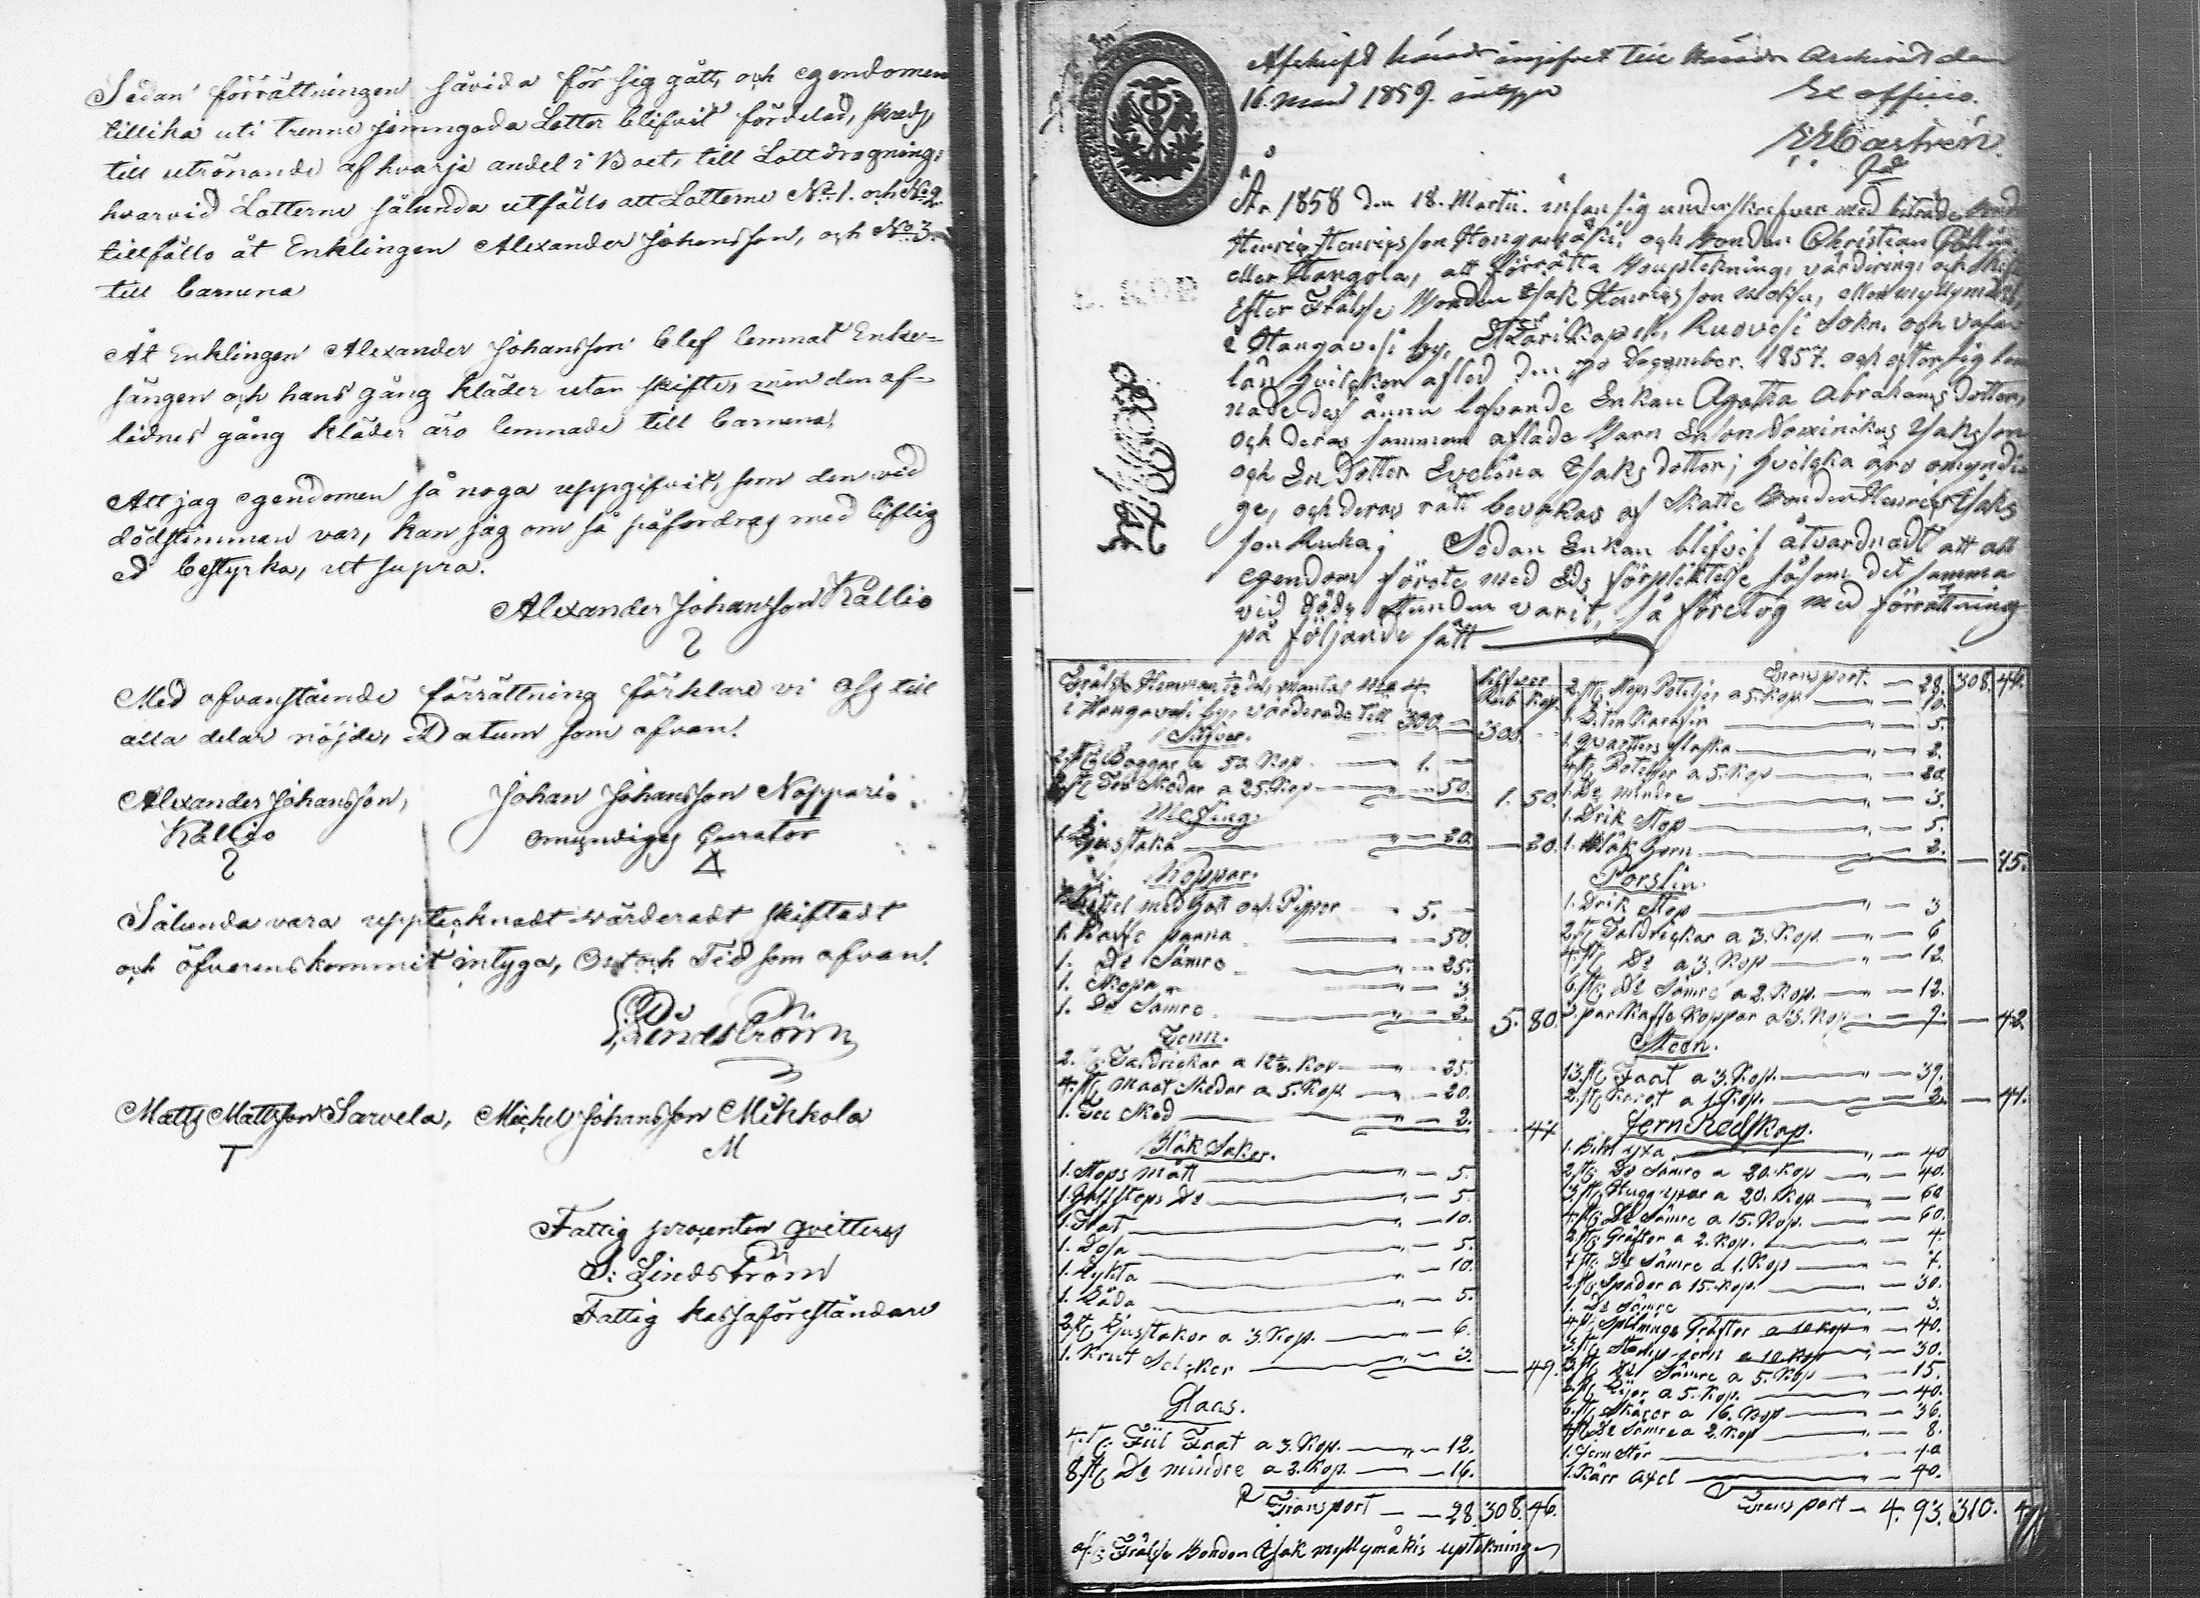 Sedan förrättningen såvida för sig gått, och egendomen
tillika uti trenne jemngoda Lotter blifvit fördelad, skreds
till utrönande af hvarje andel i Boet, till Lottdragning,
hvarvid Lotterne sålunda utföllo att Lotterne No 1. och No 2
tillföllo åt Enklingen Alexander Johansson, och No 3.
till barnena
Åt Enklingen Alexander Johansson blef lemnat Enke-
sängen och hans gång kläder utan skifte, men den af-
lidnes gång kläder äro lemnade till barnena.
Att jag egendomen så noga uppgifvit, som den vid
dödstimman var, kan jag om så påfordras med liflig
ed bestyrka, ut supra.
Alexander Johansson Kallio
Med ofvanstående förrättning förklare vi oss till
alla delar nöjde, Datum som ofvan.
Alexander Johansson, Johan Johansson Noppari
Kallio omyndiges Curator
Sålunda vara upptecknadt värderadt skiftadt
och öfverenskommit intyga, Ort och Tid som ofvan.
Lindström
Matts Mattsson Sarvela, Michel Johansson Mikkola
T M
Fattig procenten qvitteras
S: Lindström
Fattig kassaföreståndare
Afskrift härad ingifvet till Härads Archivet den
16. 1859. intygar Ex officio.
Castrén
År 1858 den 18. Martii. infan sig underskrefven med biträde
Henric Henricsson och bonden Christian
eller Hangola, att förrätta Bouptekning, värdering och
Efter Frälse Bonden Isak Henricsson eller Myllymäki,
i Hangavesi by, Kapell, Ruovesi Sokn. och Vasa
län hvilken afled den December. 1857. och efter sig lem
nade dess ännu lefvande Enkan Agatha Abrahams dotter,
och deras samman aflade Barn Sonen Dominikus Isaksson
och En Dotter Evelina Isaks dotter; hvilcka äro omyndi
ge, och deras rätt bevakas af Skatte Bonden Henric Isaks
son Ruha; Sedan Enkan blifvit åtvarnadt att all
egendom förete med Eds förpliktelse såsom det samma
vid döds stunden varit, så företog med förrättning
på följande sätt
Frälse Hemman dels mantal No 4. Silfver
i Hangavesi by. värderade till 300. Rub. Kop. 300.
Silfver.
2. st: Baggar a 50. Kop 1.
2. st: Te Skedar a 25. Kop 50. 1. 50.
Messing
1. Ljustaka 20. 20.
Koppar.
1. Kittel med Hatt och Pipor 5.
1. Kaffe panna 50.
1. Do Sämre 25.
1. Skopa 3
1. Do Sämre 2. 5. 80.
Tenn.
2. st: Taldrickar a 12½. Kop 25.
4. st: Maat Skedar a 5. Kop 20.
1. Skod 2. 47
Bläk Saker.
1. Stops mått 5.
1. Halfstops Do 5.
1. Fat 10.
1. Dosa 5.
1. Lykta 10.
1. Låda 5.
2. st: Ljusstakor a 3. Kop. 6.
1. Krut 3. 49.
Glaas.
4. st: Fiil Faat a 3. Kop. 12.
8. st: Do mindre a 2. Kop. 16.
Transport 28. 308. 46.
afl: Frälse Bonden Isak Myllymäkis uptekning
Transport. 28. 308. 46.
2. st: Poteljer a 5. Kop. 10.
1. Liten Karafin 5.
1. Qvarters Flaska 2.
4. st: Poteljer a 5. Kop 20.
1. Do mindre 3.
1. Drik Stop 5.
1. Bläk Horn 2. 75.
Porslin.
1. Drik Stop 3
2. st: Taldrickar a 3. Kop. 6
4. st: Do a 3. Kop 12.
6. st: Do Sämre a 2. Kop. 12.
3. par Kaffe Koppar a 3. Kop 9. 42
Steen.
13. st: Faat a 3. Kop. 39.
2. st: a 1. Kop. 2. 41.
Jern Redskap.
1. Bihl yxa 40
2. st: Do Sämre a 20. Kop 40.
3. st: Hugg yxor a 20. Kop. 60
4. st: Do Sämre a 15. Kop. 60.
2. st: Gräftor a 2. Kop. 4.
7. st: Do Sämre a 1. Kop 7.
2. st: Spador a 15. Kop. 30.
1. Do Sämre 3.
4. st: Gräftor a 10 kop 40.
3. st: a 10 kop 30.
3. st: Do Sämre a 5. Kop 15.
8. st: Lijor a 5. Kop. 40.
6. st: Skäror a 16. Kop 36.
4. st: Do Sämre a 2. Kop 8.
1. Jern Stör 40
1. Kärr Axel 40.
Transport 4. 93. 310.